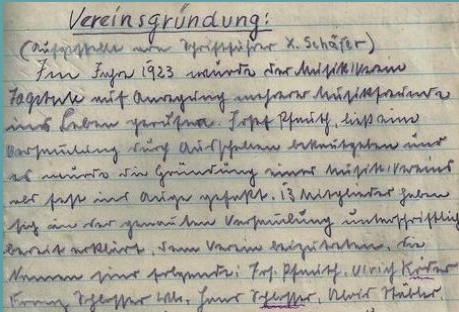 Vereinsgründung:
(Aufgestellt von Schriftführer X. Schäfer)
Im Jahre 1923 wurde der Musikverein
auf Anregung mehrerer Musikfreunde
ins Leben gerufen. Josef Pfauth, ließ eine
Versammlung durch Ausschellen bekanntgeben und
es wurde die Gründung eines Musik-Vereins
als fest ins Auge gefaßt. 13 Mitglieder haben
sich an der genannten Versammlung unterschriftlich
bereit erklärt, dem Verein beizutreten. Die
Namen sind folgende: Jos. Pfauth. Ulrich
Franz Schlosser, Hans Schlosser, Alois